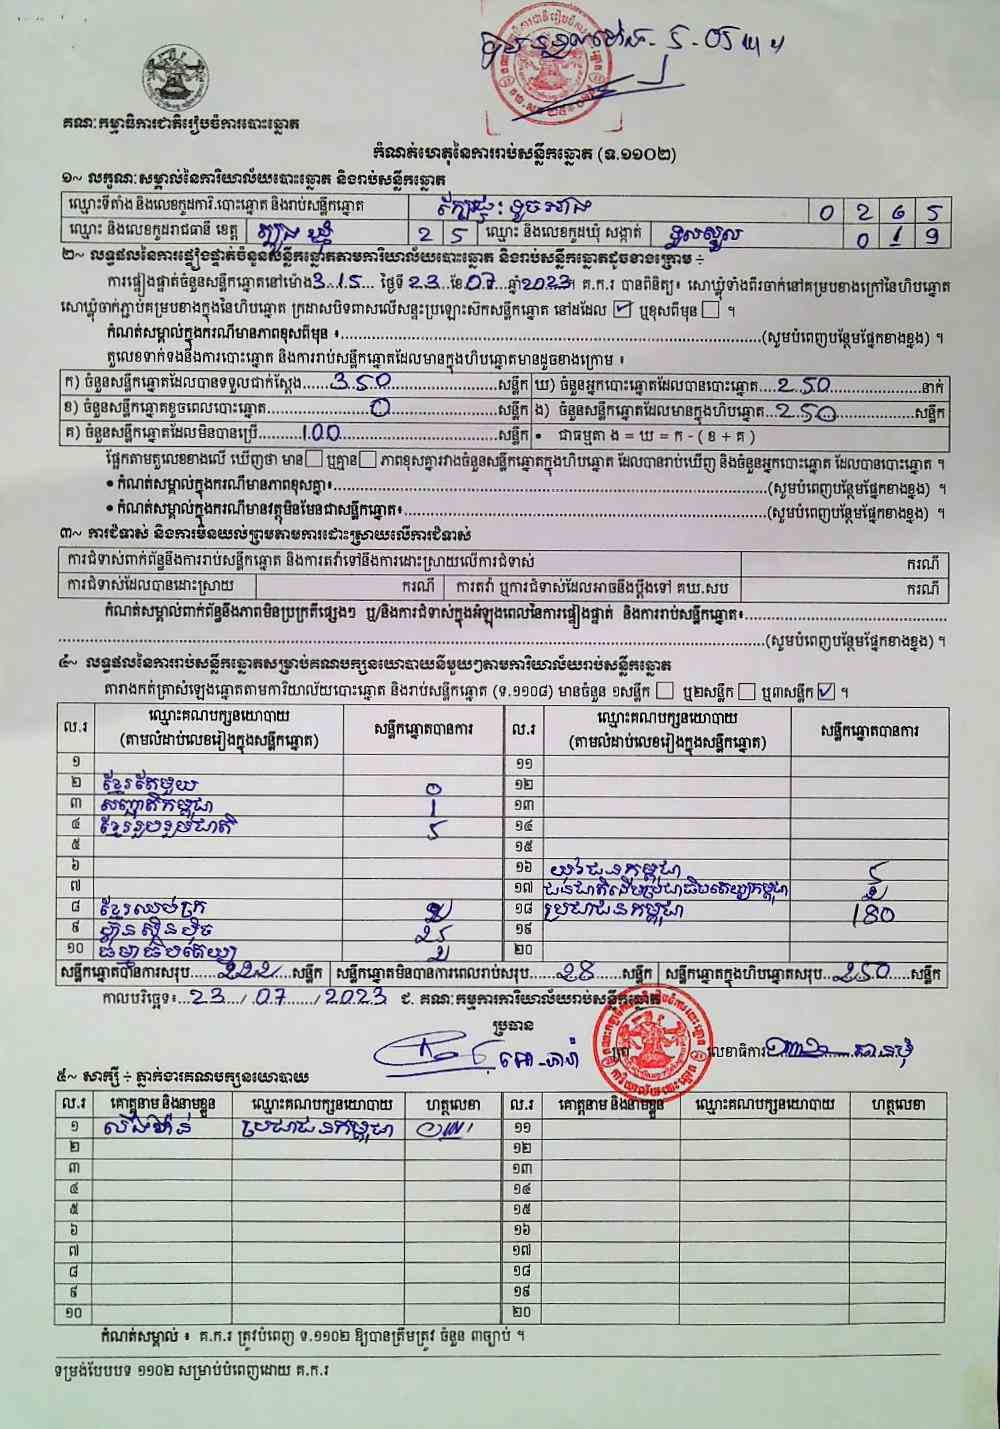 គណៈកម្មាធិការជាតិរៀបចំការបោះឆ្នោត
កំណត់ហេតុនៃការរាប់សន្លឹកឆ្នោត (ទ.១១០២)
១~ លក្ខណៈសម្គាល់នៃការិយាល័យបោះឆ្នោត និងរាប់សន្លឹកឆ្នោត
ឈ្មោះទីតាំង និងលេខកូដការិ.បោះឆ្នោត និងរាប់សន្លឹកឆ្នោត 0 2 6 5
ឈ្មោះ និងលេខកូដរាជធានី ខេត្ត ត្បូងឃ្មុំ 2 5 ឈ្មោះ និងលេខកូដឃុំ សង្កាត់ ទួលស្នួល 0 1 9
២~ លទ្ធផលនៃការផ្ទៀងផ្ទាត់ចំនួនសន្លឹកឆ្នោតតាមការិយាល័យបោះឆ្នោត និងរាប់សន្លឹកឆ្នោតដូចខាងក្រោម ÷
ការផ្ទៀងផ្ទាត់ចំនួនសន្លឹកឆ្នោតនៅម៉ោង 3.15 ថ្ងៃទី 23 ខែ 07 ឆ្នាំ 2023។ គ.ក.រ បានពិនិត្យ៖ សោឃ្លុំទាំងពីរចាក់នៅគម្របខាងក្រៅនៃហិបឆ្នោត
សោឃ្លុំចាក់ភ្ជាប់គម្របខាងក្នុងនៃហិបឆ្នោត ក្រដាសបិទពាសលើសន្ទះប្រឡោះស៊កសន្លឹកឆ្នោត នៅដដែល ☑ ឬខុសពីមុន ☐ ។
កំណត់សម្គាល់ក្នុងករណីមានភាពខុសពីមុន ៖ (សូមបំពេញបន្ថែមផ្នែកខាងខ្នង) ។
តួលេខទាក់ទងនឹងការបោះឆ្នោត និងការរាប់សន្លឹកឆ្នោតដែលមានក្នុងហិបឆ្នោតមានដូចខាងក្រោម ៖
ក) ចំនួនសន្លឹកឆ្នោតដែលបានទទួលជាក់ស្តែង 350 សន្លឹក ឃ) ចំនួនអ្នកបោះឆ្នោតដែលបានបោះឆ្នោត 250 នាក់
ខ) ចំនួនសន្លឹកឆ្នោតខូចពេលបោះឆ្នោត 0 សន្លឹក ង) ចំនួនសន្លឹកឆ្នោតដែលមានក្នុងហិបឆ្នោត 250 សន្លឹក
គ) ចំនួនសន្លឹកឆ្នោតដែលមិនបានប្រើ 100 សន្លឹក • ជាធម្មតា ង = ឃ = ក - ( ខ + គ )
ផ្អែកតាមតួលេខខាងលើ ឃើញថា មាន ☐ ឬគ្មាន ☐ ភាពខុសគ្នារវាងចំនួនសន្លឹកឆ្នោតក្នុងហិបឆ្នោត ដែលបានរាប់ឃើញ និងចំនួនអ្នកបោះឆ្នោត ដែលបានបោះឆ្នោត ។
• កំណត់សម្គាល់ក្នុងករណីមានភាពខុសគ្នា៖ (សូមបំពេញបន្ថែមផ្នែកខាងខ្នង) ។
• កំណត់សម្គាល់ក្នុងករណីមានវត្ថុមិនមែនជាសន្លឹកឆ្នោត៖ (សូមបំពេញបន្ថែមផ្នែកខាងខ្នង) ។
៣~ ការជំទាស់ និងការមិនយល់ព្រមតាមការដោះស្រាយលើការជំទាស់
ការជំទាស់ពាក់ព័ន្ធនឹងការរាប់សន្លឹកឆ្នោត និងការតវ៉ាទៅនឹងការដោះស្រាយលើការជំទាស់ ករណី
ការជំទាស់ដែលបានដោះស្រាយ ករណី ការតវ៉ា ឬការជំទាស់ដែលអាចនឹងប្តឹងទៅ គឃ.សប ករណី
កំណត់សម្គាល់ពាក់ព័ន្ធនឹងភាពមិនប្រក្រតីផ្សេងៗ ឬ/និងការជំទាស់ក្នុងអំឡុងពេលនៃការផ្ទៀងផ្ទាត់ និងការរាប់សន្លឹកឆ្នោត៖
(សូមបំពេញបន្ថែមផ្នែកខាងខ្នង) ។
៤~ លទ្ធផលនៃការរាប់សន្លឹកឆ្នោតសម្រាប់គណបក្សនយោបាយនីមួយៗតាមការិយាល័យរាប់សន្លឹកឆ្នោត
តារាងកត់ត្រាសំឡេងឆ្នោតតាមការិយាល័យបោះឆ្នោត និងរាប់សន្លឹកឆ្នោត (ទ.១១០៨) មានចំនួន ១សន្លឹក ☐ ឬ២សន្លឹក ☐ ឬ៣សន្លឹក ☑ ។
ល.រ ឈ្មោះគណបក្សនយោបាយ (តាមលំដាប់លេខរៀងក្នុងសន្លឹកឆ្នោត) សន្លឹកឆ្នោតបានការ ល.រ ឈ្មោះគណបក្សនយោបាយ (តាមលំដាប់លេខរៀងក្នុងសន្លឹកឆ្នោត) សន្លឹកឆ្នោតបានការ
១ ១១
២ ខ្មែរតែមួយ 0 ១២
៣ សញ្ជាតិកម្ពុជា 1 ១៣
៤ ខ្មែររួបរួមជាតិ 5 ១៤
៥ ១៥
៦ ១៦ យុវជនកម្ពុជា 5
៧ ១៧ ជនជាតិដើមប្រជាធិបតេយ្យកម្ពុជា
៨ ខ្មែរឈប់ក្រ ១៨ ប្រជាជនកម្ពុជា 180
៩ ហ្វ៊ុនស៊ិនប៉ិច 25 ១៩
១០ ធម្មាធិបតេយ្យ ២០
សន្លឹកឆ្នោតបានការសរុប 222 សន្លឹក សន្លឹកឆ្នោតមិនបានការពេលរាប់សរុប 28 សន្លឹក សន្លឹកឆ្នោតក្នុងហិបឆ្នោតសរុប 250 សន្លឹក
កាលបរិច្ឆេទ៖ 23 / 07 / 2023 ជ. គណៈកម្មការការិយាល័យរាប់សន្លឹកឆ្នោត
ប្រធាន
លេខាធិការ
៥~ សាក្សី ÷ ភ្នាក់ងារគណបក្សនយោបាយ
ល.រ គោត្តនាម និងនាមខ្លួន ឈ្មោះគណបក្សនយោបាយ ហត្ថលេខា ល.រ គោត្តនាម និងនាមខ្លួន ឈ្មោះគណបក្សនយោបាយ ហត្ថលេខា
១ ប្រជាជនកម្ពុជា ១១
២ ១២
៣ ១៣
៤ ១៤
៥ ១៥
៦ ១៦
៧ ១៧
៨ ១៨
៩ ១៩
១០ ២០
កំណត់សម្គាល់ ៖ គ.ក.រ ត្រូវបំពេញ ទ.១១០២ ឱ្យបានត្រឹមត្រូវ ចំនួន ៣ច្បាប់ ។
ទម្រង់បែបបទ ១១០២ សម្រាប់បំពេញដោយ គ.ក.រ